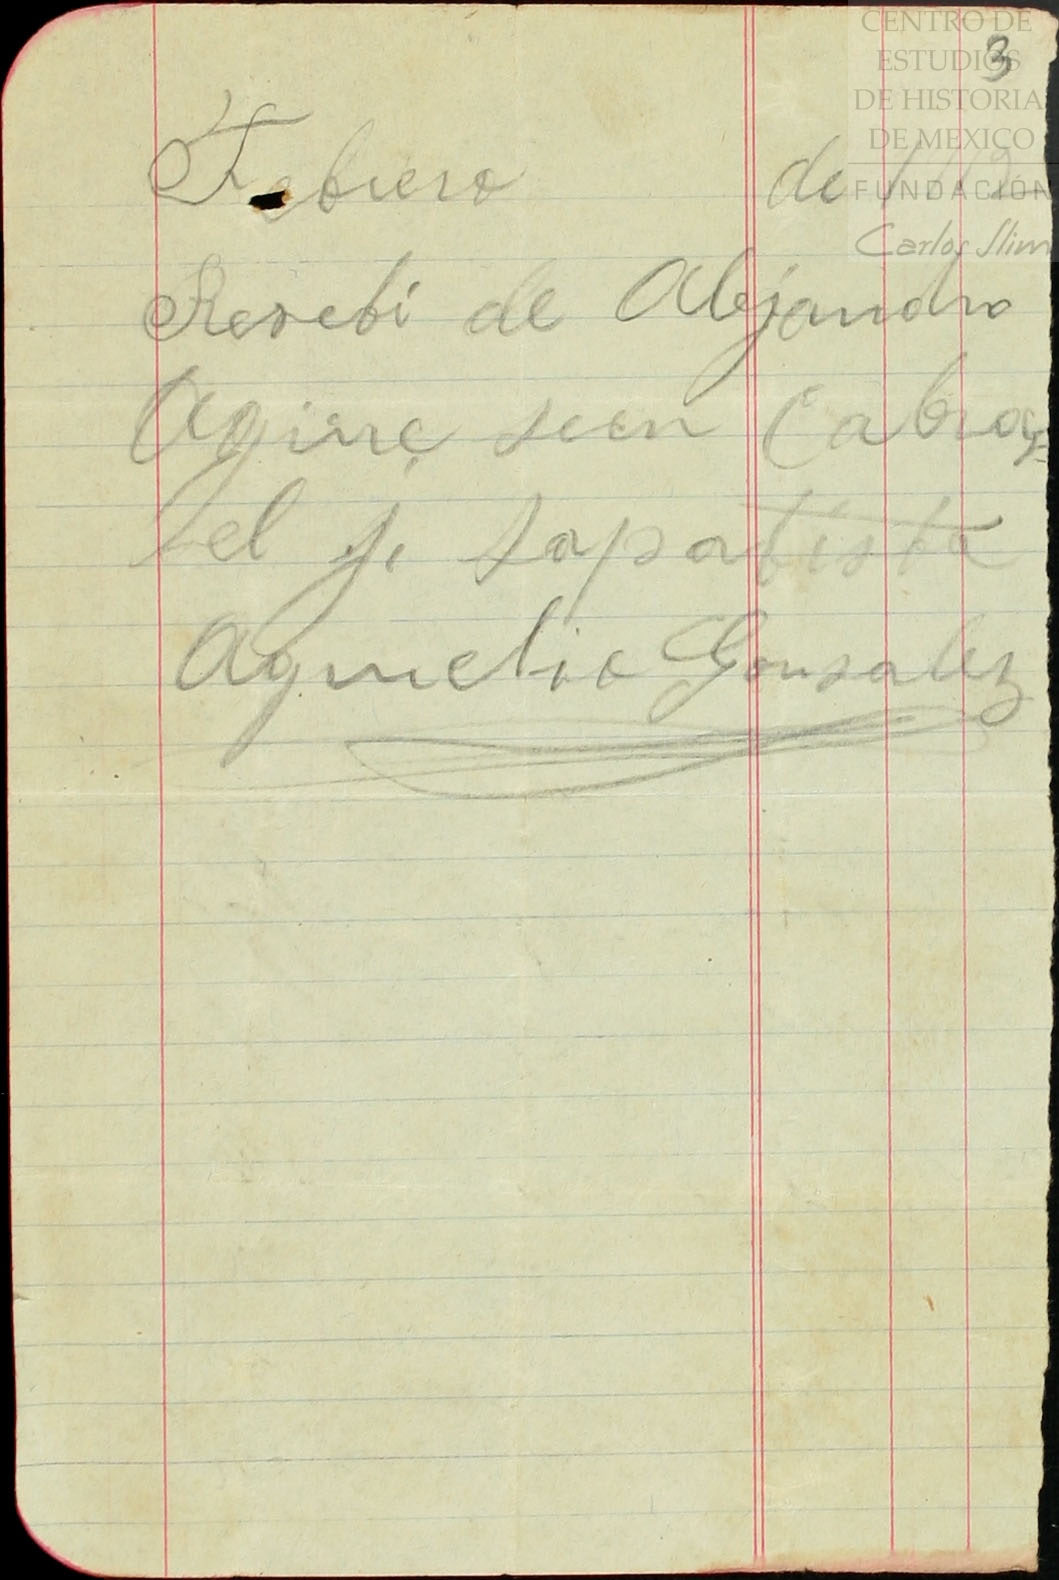 3
CENTRO DE
ESTUDIOS
DE HISTORIA
DE MEXICO
FUNDACIÓN
Carlos Slim
Febrero de
Resebi de Alejandro
Agirre seen Cabros
el J. Sapatista
Agnelio Gonsalez